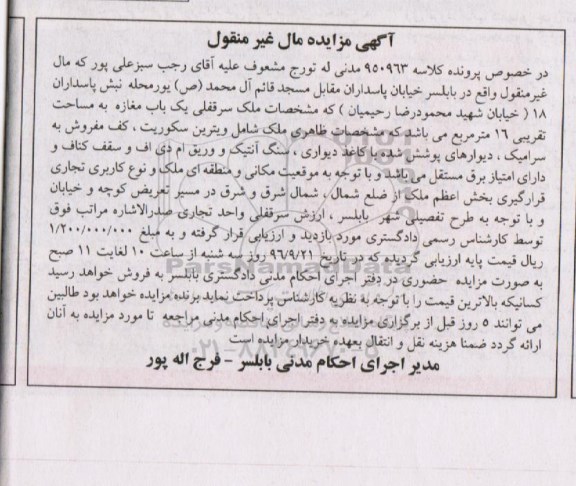 آگهی مزایده مال غیر منقول
در خصوص پرونده کلاسه ۹۵۰۹۶۳ مدنی له تورج مشعوف علیه آقای رجب سبزعلی پور که مال
غیرمنقول واقع در بابلسر خیابان پاسداران مقابل مسجد قائم آل محمد (ص) یورمحله نبش پاسداران
۱۸ ( خیابان شهید محمودرضا رحیمیان ) که مشخصات ملک سرقفلی یک باب مغازه به مساحت
تقریبی ۱۶ مترمربع می باشد که مشخصات ظاهری ملک شامل ویترین سکوریت ، کف مفروش به
سرامیک ، دیوارهای پوشش شده با کاغذ دیواری ، سنگ آنتیک و وریق ام دی اف و سقف کناف و
دارای امتیاز برق مستقل می باشد و با توجه به موقعیت مکانی و منطقه ای ملک و نوع کاربری تجاری
قرارگیری بخش اعظم ملک از ضلع شمال ، شمال شرق و شرق در مسیر تعریض کوچه و خیابان
و با توجه به طرح تفصیلی شهر بابلسر ، ارزش سرقفلی واحد تجاری صدرالاشاره مراتب فوق
توسط کارشناس رسمی دادگستری مورد بازدید و ارزیابی قرار گرفته و به مبلغ ۱/۲۰۰/۰۰۰/۰۰۰
ریال قیمت پایه ارزیابی گردیده که در تاریخ ۹۶/۹/۲۱ روز سه شنبه از ساعت ۱۰ لغایت ۱۱ صبح
به صورت مزایده حضوری در دفتر اجرای احکام مدنی دادگستری بابلسر به فروش خواهد رسید
کسانیکه بالاترین قیمت را با توجه به نظریه کارشناس پرداخت نماید برنده مزایده خواهد بود طالبین
می توانند ۵ روز قبل از برگزاری مزایده به دفتر اجرای احکام مدنی مراجعه تا مورد مزایده به آنان
ارائه گردد ضمنا هزینه نقل و انتقال بعهده خریدار مزایده است
مدیر اجرای احکام مدنی بابلسر - فرج اله پور
ParsNamadData